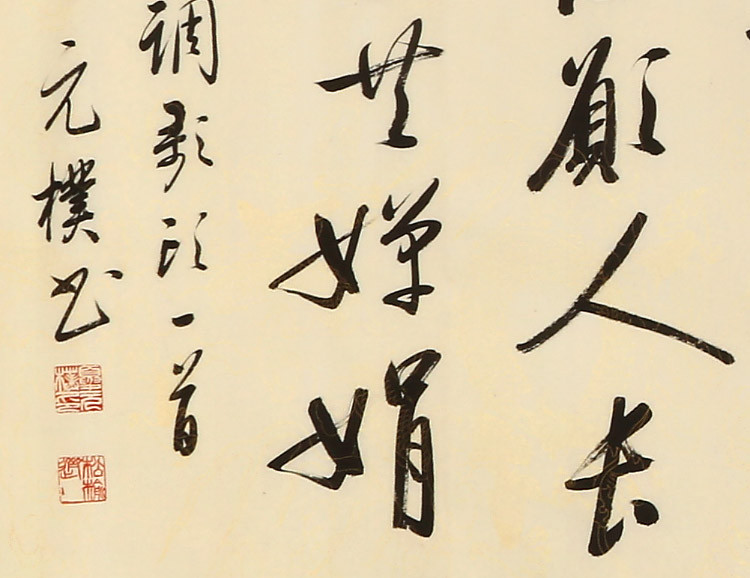 願人長
共嬋娟
調歌頭一首
元樸書